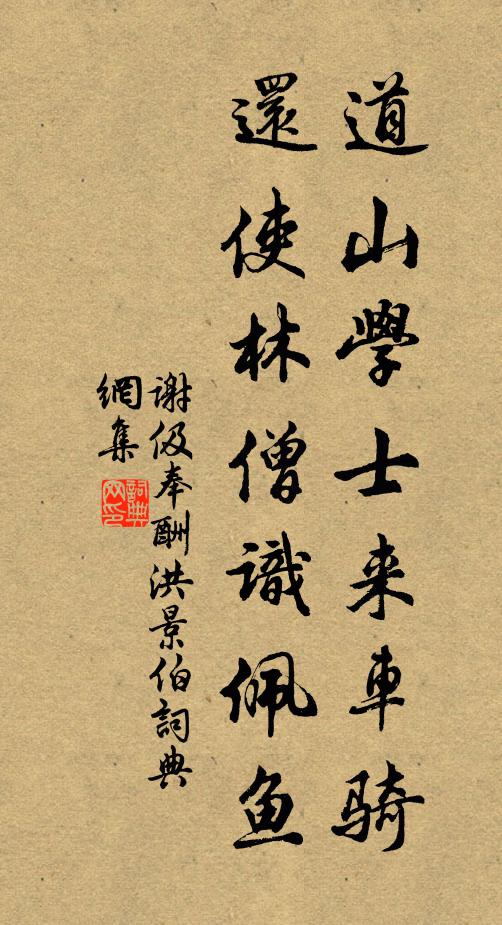 道山學士来車騎
還使林僧識佩鱼
谢伋奉酬洪景伯詞典
網集
詞典
网印